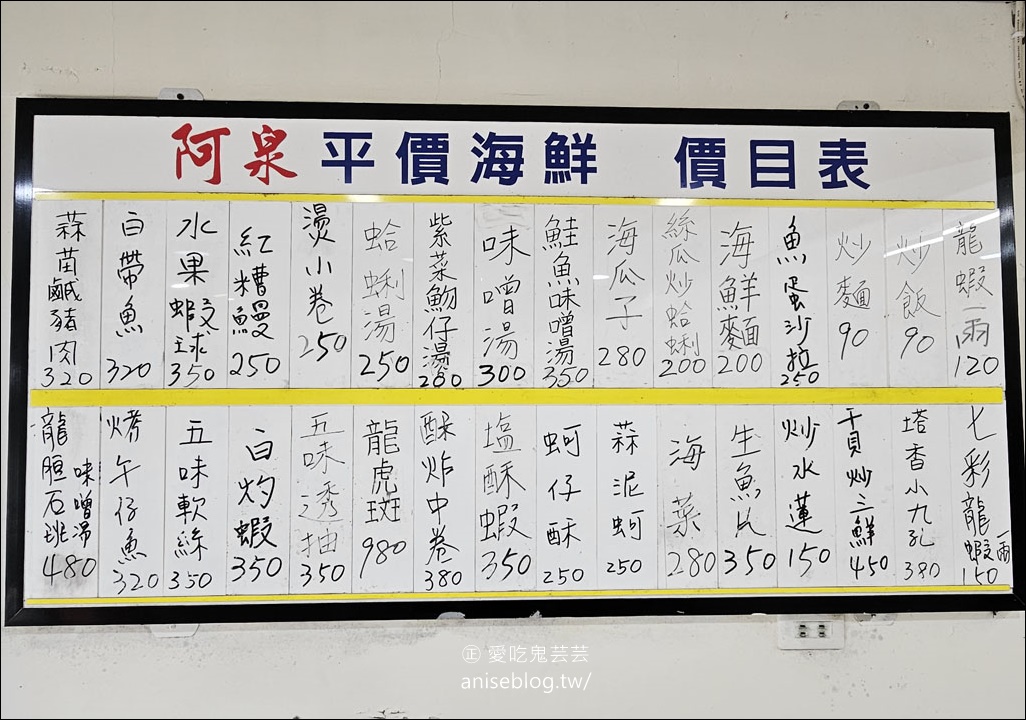 阿泉 平價海鮮 價目表
龍蝦一兩 120
炒飯 90
炒麵 90
魚蛋沙拉 250
海鮮麵 200
絲瓜炒蛤蜊 200
海瓜子 280
鮭魚味噌湯 350
味噌湯 300
紫菜魩仔湯 280
蛤蜊湯 250
燙小卷 250
紅糟鰻 250
水果蝦球 350
白帶魚 320
蒜苗鹹豬肉 320
七彩龍蝦一兩 150
塔香小九孔 380
干貝炒三鮮 450
炒水蓮 150
生魚片 350
海菜 280
蒜泥蚵 250
蚵仔酥 250
塩酥蝦 350
酥炸中卷 380
龍虎斑 980
五味透抽 350
白灼蝦 350
五味軟絲 350
烤午仔魚 320
龍膽石斑味噌湯 480
㊣ 愛吃鬼芸芸
aniseblog.tw/